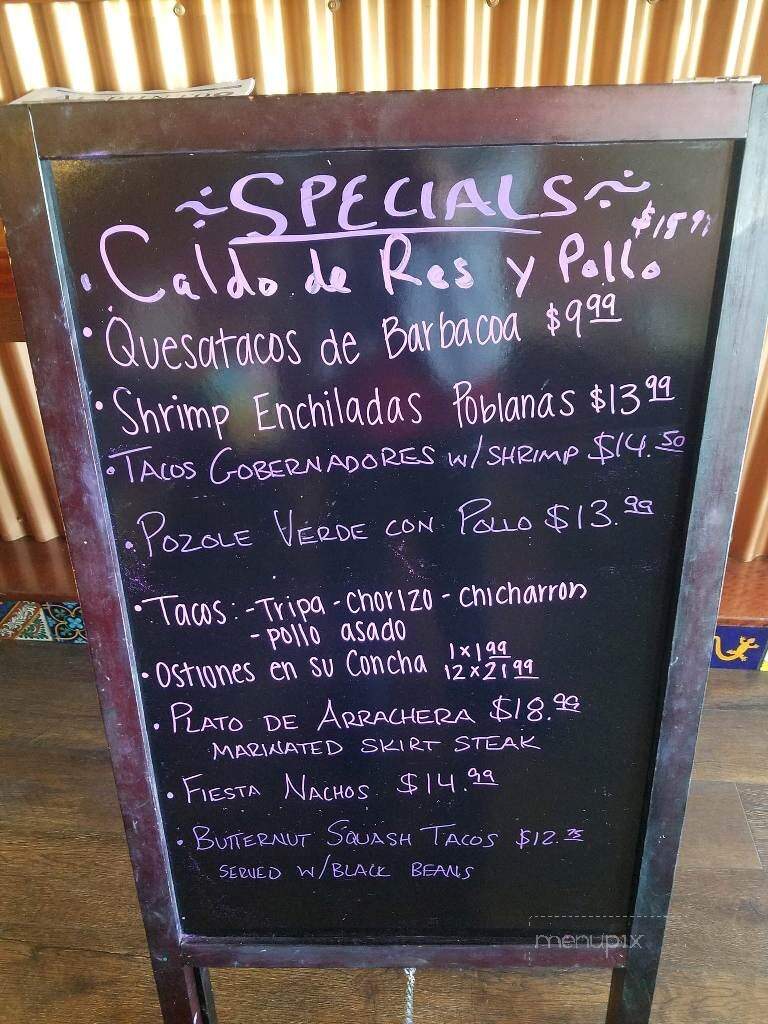 ~SPECIALS~
$15.99
• Caldo de Res y Pollo
• Quesatacos de Barbacoa $9.99
• Shrimp Enchiladas Poblanas $13.99
• TACOS GOBERNADORES W/SHRIMP $14.50
• POZOLE VERDE CON POLLO $13.99
• Tacos: - Tripa - chorizo - chicharron
- pollo asado
• Ostiones en su Concha 1x1.99
12x21.99
• PLATO DE ARRACHERA $18.99
MARINATED SKIRT STEAK
• FIESTA NACHOS $14.99
• BUTTERNUT SQUASH TACOS $12.75
SERVED W/BLACK BEANS
menupix